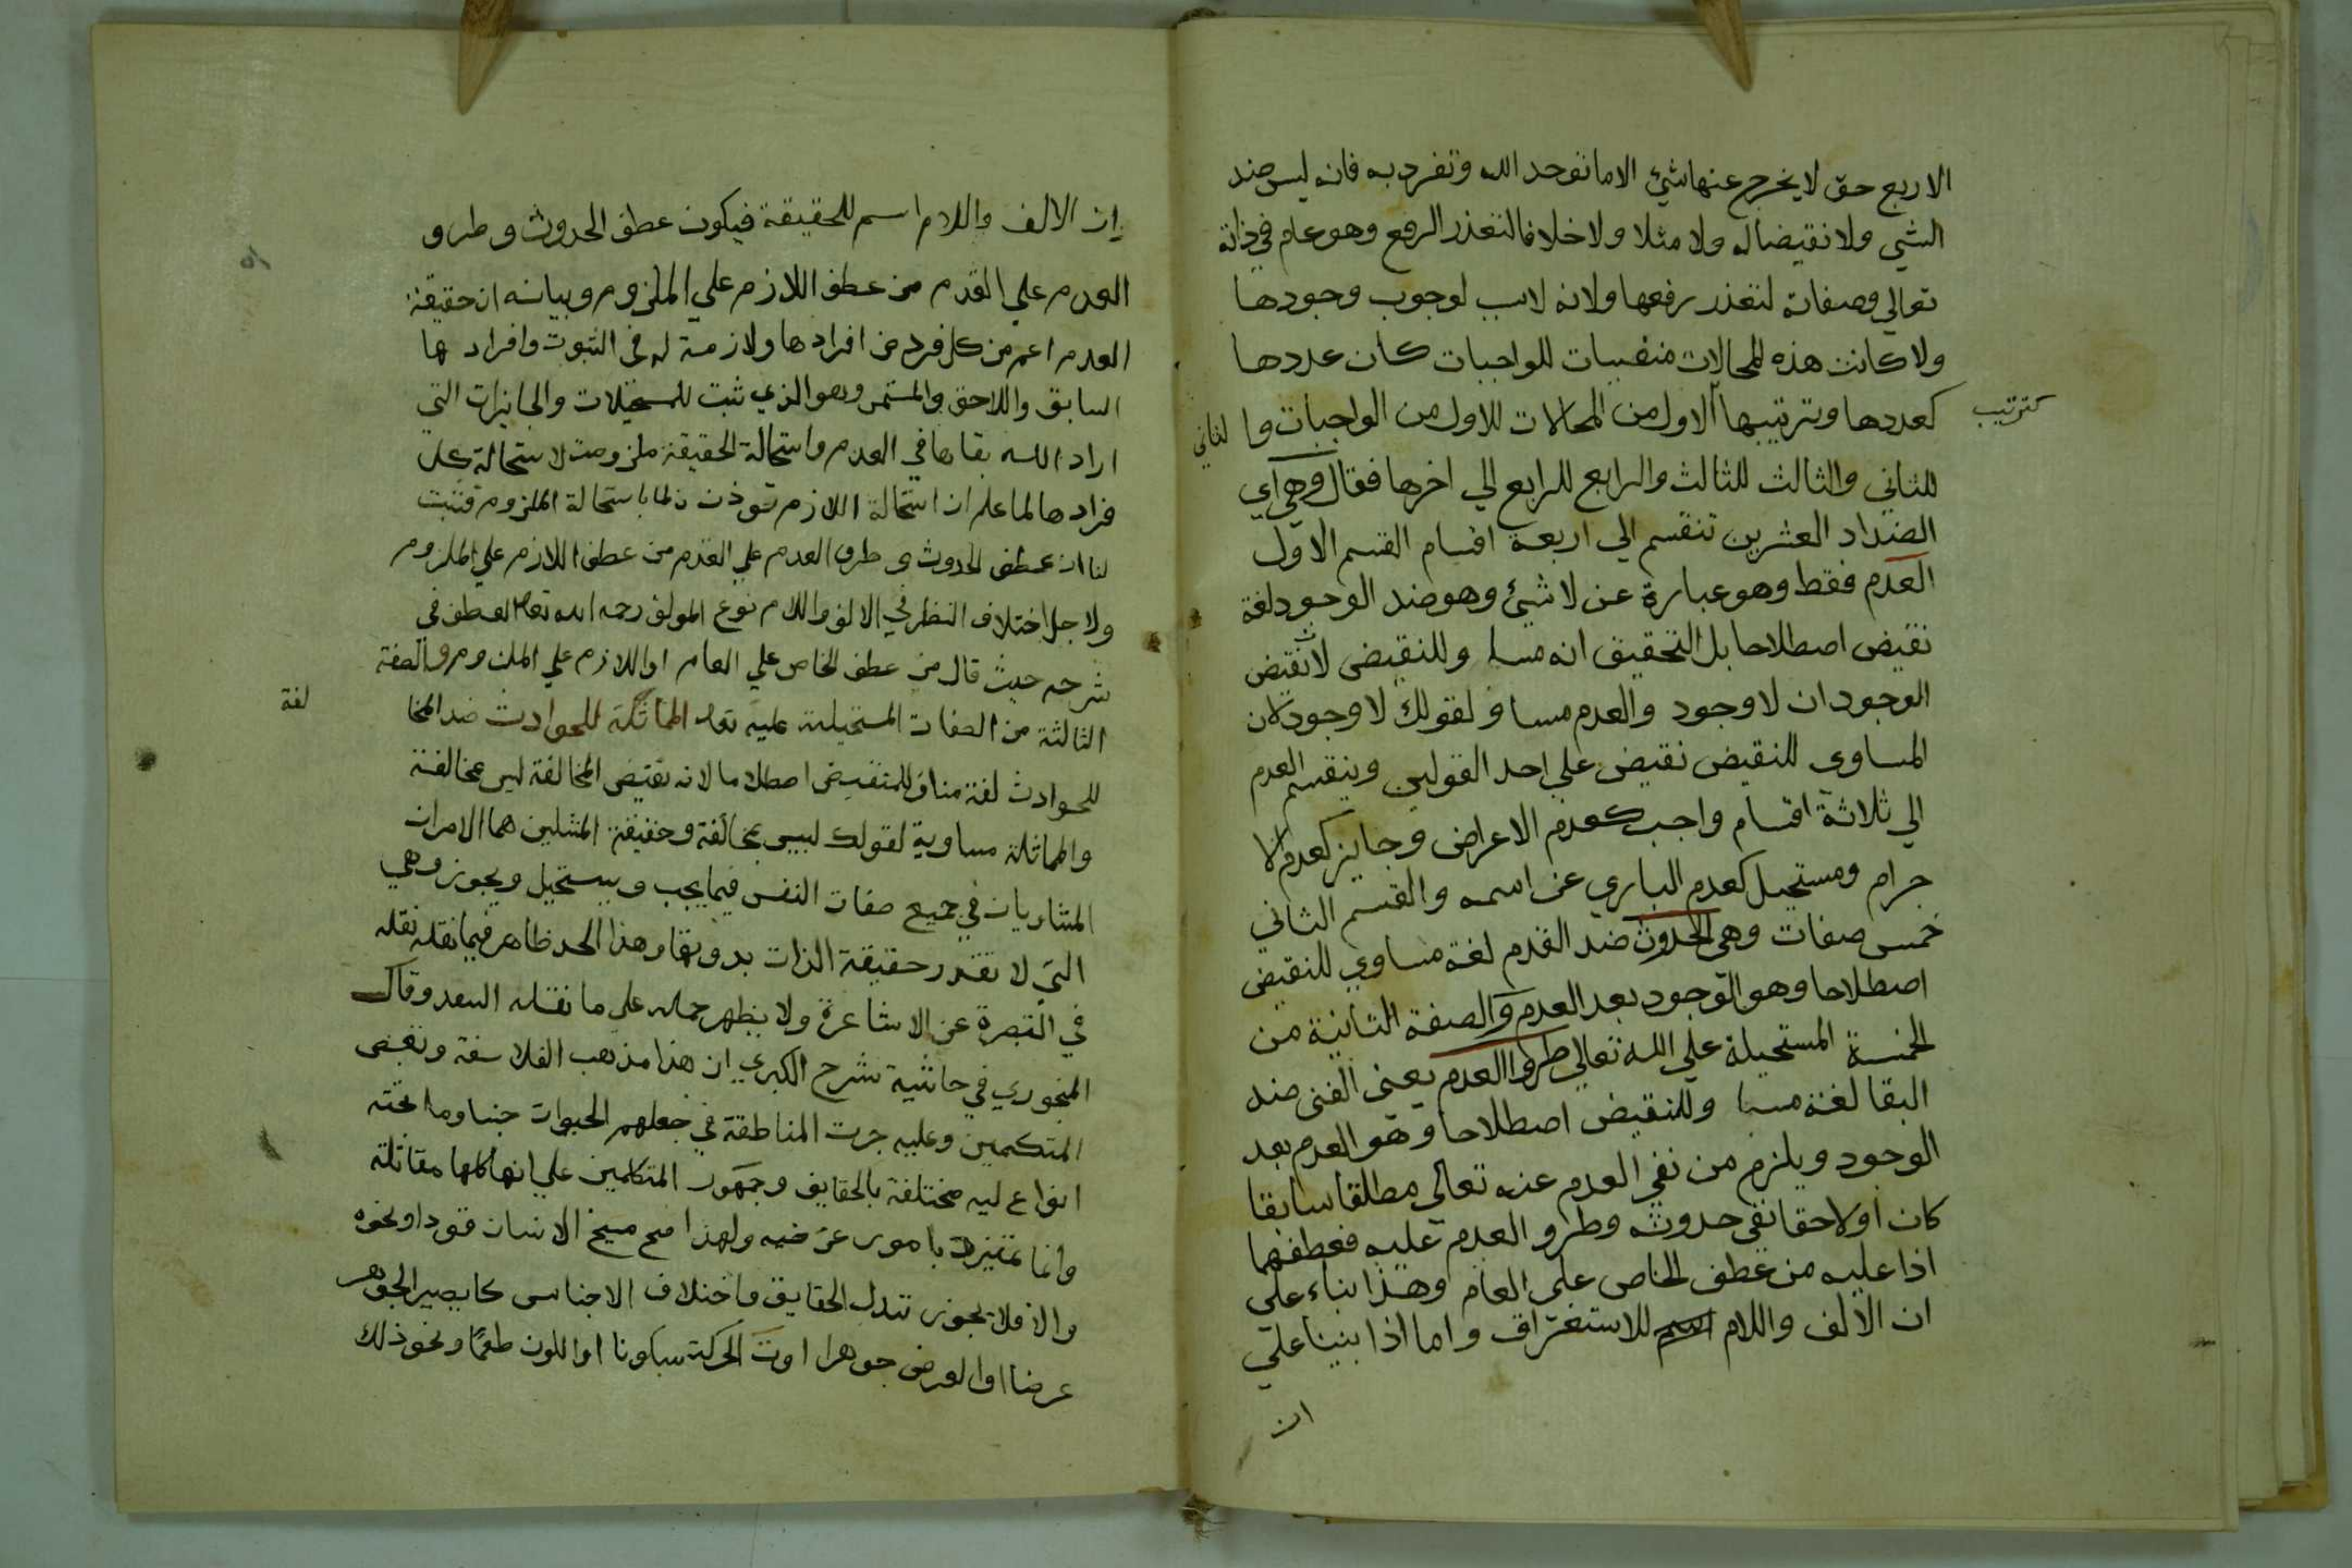 الاربع حق لا يخرج عنها شيئ الا ما توحد الله وتفرد به فانه ليس ضد
الشيء ولا نقيضا له ولا مثلا ولا خلافا لتعذر الرفع وهو عام في ذاته
تعالي وصفاته لتعذر رفعها ولانه لوجوب وجودها
ولا كانت هذه المحالات للواجبات كان عددها
كعددها وترتيبها الاول من المحالات للاول من الواجبات وا لثاني
كترتيب
للثاني والثالث للثالث والرابع للرابع الي اخرها فقال وهي اي
الضداد العشرين تنقسم الي اربعة اقسام القسم الاول
العدم فقط وهو عبارة عن لا شيئ وهو ضد الوجود لغة
نقيض اصطلاحا بل التحقيق انه مسا وللنقيض لا نقيض
الوجود ان لا وجود والعدم مساو لقولك لا وجود لان
المساوي للنقيض نقيض علي احد القولين وينقسم العدم
الي ثلاثة اقسام واجب كعدم الاعراض وجايز كعدم الا
جرام ومستحيل كعدم الباري عن اسمه والقسم الثاني
خمس صفات وهي الحدوث ضد القدم لغة مساوي للنقيض
اصطلاحا وهو الوجود بعد العدم والصفة الثانية من
الخمسة المستحيلة علي الله تعالي طروا العدم يعني الفني ضد
البقا لغة مسا وللنقيض اصطلاحا وهو العدم بعد
الوجود ويلزم من نفي العدم عنه تعالي مطلقا سابقا
كان اولاحقا نفي حدوثه وطرو العدم عليه فعطفهما
اذا عليه من عطف الخاص على العام وهذا بناء علي
ان الالف واللام للاستغراق واما اذا بنينا علي
ان
ان الالف واللام اسم للحقيقة فيكون عطف الحدوث وطرو
العدم علي القدم من عطف اللازم علي الملزوم وبيانه ان حقيقة
العدم اعم من كل فرد من افرادها ولازمة له في الثبوت وافرادها
السابق واللاحق والمستمر وهو الذي ثبت للمستحيلات والجايزات التي
اراد الله بقاها في العدم واستحالة الحقيقة ملزومة لاستحالة كل
فرادها لما علم ان استحالة اللازم باستحالة الملزوم فتثبت
لنا ان عطف الحدوث و طرو العدم علي القدم من عطف اللازم علي الملزوم
ولاجل اختلاف النظر في الالف واللام نوع المولف رحمه الله تعالي العطف في
شرحه حيث قال من عطف الخاص علي العام او اللازم علي الملزوم والصفة
الثالثة من الصفات المستحيلة عليه تعالي المماثلة للحوادث ضد المخا
لفة
للحوادث لغة مناف للنقيض اصطلاحا لانه نقيض المخالفة ليس بمخالفة
والمماثلة مساوية لقولك ليس بمخالفة وحقيقة المثلين هما الامران
المتساويان في جميع صفات النفس فيما يجب ويستحيل ويجوز وهي
التي لا تتقرر حقيقة الذات بدونها وهذا الحد ظاهر فيما نقله نقله
في التبصرة عن الاشاعرة ولا يظهر حمله علي ما نقله السعد وقال
المنجوري في حاشية شرح الكبري ان هذا مذهب الفلاسفة وبعض
المتكلمين وعليه جرت المناطقة في جعلهم الحيوان جنسا وما تحته
انواع ليه مختلفة بالحقايق وجمهور المتكلمين علي انها كلها متماثلة
وانما تمتيز بامور عرضية ولهذا صح مسخ الانسان قردا ونحوه
والا فلا يجوز تبدل الحقايق واختلاف الاجناس كما يصير الجوهر
عرضا او العرض جوهرا او الحركة سكونا او اللون طعما ونحو ذلك